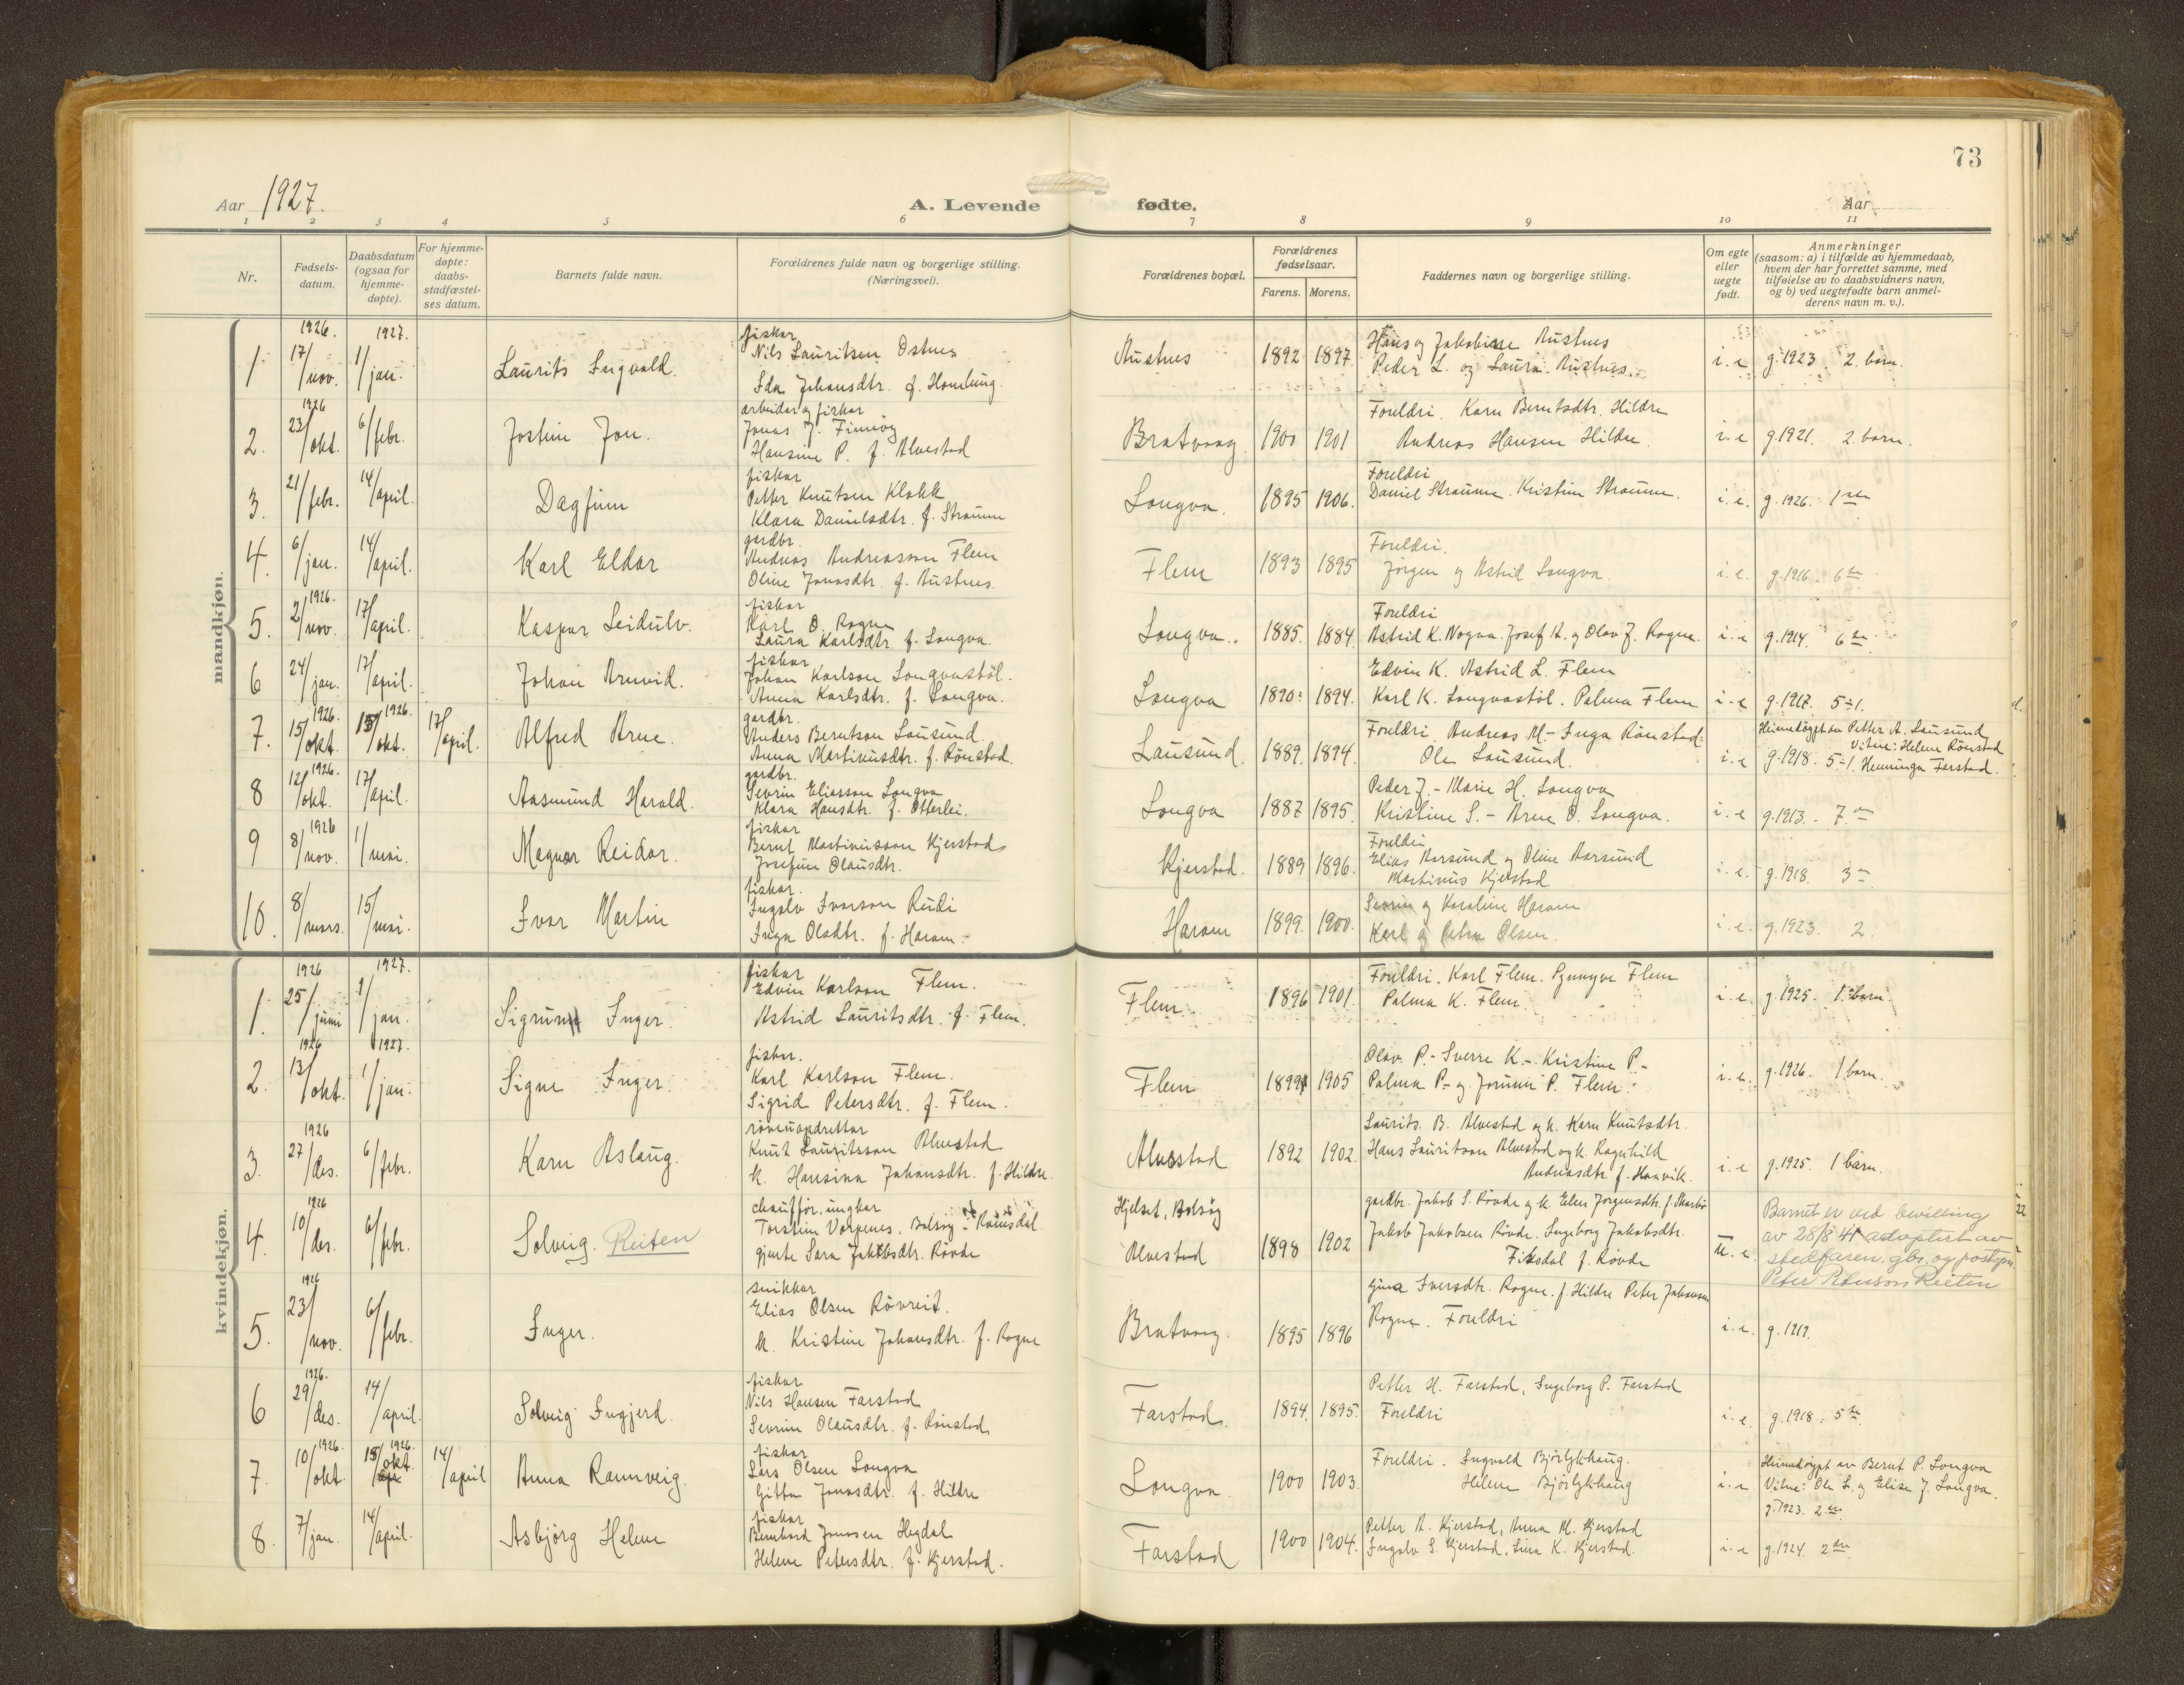 73
Aar 1927.
A. Levende fødte.
Aar
1 2 3 4 5 6 7 8 9 10 11
Nr.
Fødselsdatum.
Daabsdatum (ogsaa for hjemmedøpte).
For hjemmedøpte: daabsstadfæstelses datum.
Barnets fulde navn.
Forældrenes fulde navn og borgerlige stilling. (Næringsvei).
Forældrenes bopæl.
Forældrenes fødselsaar.
Farens. Morens.
Faddernes navn og borgerlige stilling.
Om egte eller uegte født.
Anmerkninger
(saasom: a) i tilfælde av hjemmedaab, hvem der har forrettet samme, med tilføielse av to daabsvidners navn, og b) ved uegtefødte barn anmelderens navn m. v.).
mandkjøn.
1. 1926. 17/nov. 1927. 1/jan. Laurits Ingvald. fiskar Nils Lauritsen Ostnes Ida Johansdtr. f. Hamling. Austnes 1892 1897 Hans og Jakobine Austnes Peder L. og Laura Austnes. i.e g. 1923. 2. barn.
2. 1926 23/okt. 6/febr. Jostein Jon. arbeidar og fiskar Jonas J. Finnøy Hansine P. f. Alvestad Bratvaag. 1900 1901 Foreldri. Karn Berntsdtr. Hildre Andreas Hansen Hildre. i.e g. 1921. 2. barn.
3. 21/febr. 14/april. Dagfinn fiskar Petter Knutsen Klokk Klara Danielsdtr. f. Straume Longva. 1895 1906. Foreldri Daniel Straume. Kristine Straume. i.e. g. 1926. 1
4. 6/jan. 14/april. Karl Eldar gardbr. Andreas Andreasson Flem Oline Jonasdtr. f. Austnes. Flem 1893 1895 Foreldri. Jørgen og Astrid Longva. i.e. g. 1916. 6
5. 1926. 2/nov. 17/april. Kaspar Leidulv. fiskar Karl O. Rogne Laura Karlsdtr. f. Longva. Longva. 1885. 1884. Foreldri Astrid K. Nogva. Josef A. og Olav J. Rogne. i.e g. 1914. 6
6 24/jan. 17/april. Johan Arnvid. fiskar Johan Karlson Longvastøl. Anna Karlsdtr. f. Longva. Longva 1890. 1894. Edvin K. Astrid L. Flem Karl K. Longvastøl. Palma Flem i.e g. 1917. 5 1.
7. 1926. 15/okt. 1926. 15/okt. 17/april. Alfred Arne. gardbr. Anders Berntson Lausund. Anna Martinusdtr. f. Rønstad. Lausund. 1889. 1894. Foreldri Andreas M.- Inga Rønstad. Ole Lausund. i.e Heimedøypt av Petter A. Lausund Vitne: Helene Rønstad g. 1918. 5 1. Henninga Farstad.
8 1926. 12/okt. 17/april. Aasmund Harald. gardbr. Sevrin Eliasson Longva Klara Hansdtr. f. Otterlei. Longva 1887 1895. Peder J. - Marie H. Longva Kristine S. - Arne O. Longva. i.e g. 1913. 7.
9 1926 8/nov. 1/mai. Magnar Reidar. fiskar Bernt Martinusson Kjerstad Josefine Olausdtr. Kjerstad. 1889 1896. Foreldri Elias Aarsund og Oline Aarsund Martinus Kjerstad i.e. g. 1918. 3
10. 8/mars. 15/mai. Ivar Martin fiskar. Ingolv Ivarson Rudi Inga Olsdtr. f. Haram. Haram 1899. 1900. Sevrin og Karoline Haram Karl og Petra Olsen. i.e. g. 1923. 2.
kvindekjøn.
1. 1926 25/juni 1927. 1/jan. Sigrun Inger. fiskar Edvin Karlson Flem. Astrid Lauritsdtr. f. Flem. Flem. 1896 1901. Foreldri. Karl Flem. Synnøve Flem Palma K. Flem i.e. g. 1925. 1. barn.
2. 1926 13/okt. 1927. 1/jan. Signe Inger. fisker. Karl Karlson Flem. Sigrid Petersdtr. f. Flem. Flem 1899 1905 Olav P.- Sverre K.- Kristine P.- Palma P.- og Jorunn P. Flem. i.e. g. 1926. 1 barn.
3. 1926 27/des. 6/febr. Karn Aslaug. røveuopdrettar Knut Lauritsson Alvestad k. Hansina Johansdtr. f. Hildre. Alvestad 1892 1902. Laurits. B. Alvestad og k. Karn Knutsdtr. Hans Lauritson Alvestad og k. Ragnhild Andreasdtr. f. Haavik. i.e g. 1925. 1 barn.
4. 1926 10/des. 6/febr. Solveig. Reiten chauffør, ungkar Torstein Vorpenes, Bolsøy i Romsdal. gjente Sara Jakobsdtr. Røvde Hjelset, Bolsøy Alvestad 1898 1902 gardbr. Jakob S. Røvde og k. Elen Jørgensdtr. f. Skarbø Jakob Jakobsen Røvde. Ingeborg Jakobsdtr. Fiksdal f. Røvde u.e. Barnet er ved bevilling av 28/8 41 adoptert av stedfaren, gbr. og postopn. Peter Peterson Reiten
5. 1926 23/nov. 6/febr. Inger. snikkar Elias Olsen Røvreit. k. Kristine Johansdtr. f. Rogne Bratvaag. 1895 1896 Gjina Iversdtr. Rogne. f. Hildre Peter Johansen Rogne. Foreldri i.e. g. 1919.
6 1926. 29/des. 14/april. Solveig Ingjerd. fiskar Nils Hansen Farstad Sevrine Olausdtr. f. Rønstad Farstad. 1894. 1895. Petter H. Farstad, Ingeborg P. Farstad Foreldri i.e. g. 1918. 5
7. 1926. 10/okt 1926. 15/okt. 14/april Anna Rannveig. fiskar Lars Olsen Longva Gitta Jonasdtr. f. Hildre Longva. 1900 1903. Foreldri. Ingvald Bjørlykhaug. Helene Bjørlykhaug i.e Heimedøypt av Bernt P. Longva Vitne: Ole L. og Elise J. Longva. g. 1923. 2
8. 7/jan. 14/april. Asbjørg Helene fiskar Bernhard Jonssen Hegdal Helene Petersdtr. f. Kjerstad. Farstad 1900 1904. Petter A. Kjerstad, Anna M. Kjerstad Ingolv S. Kjerstad, Lina K. Kjerstad. i.e g. 1924. 2